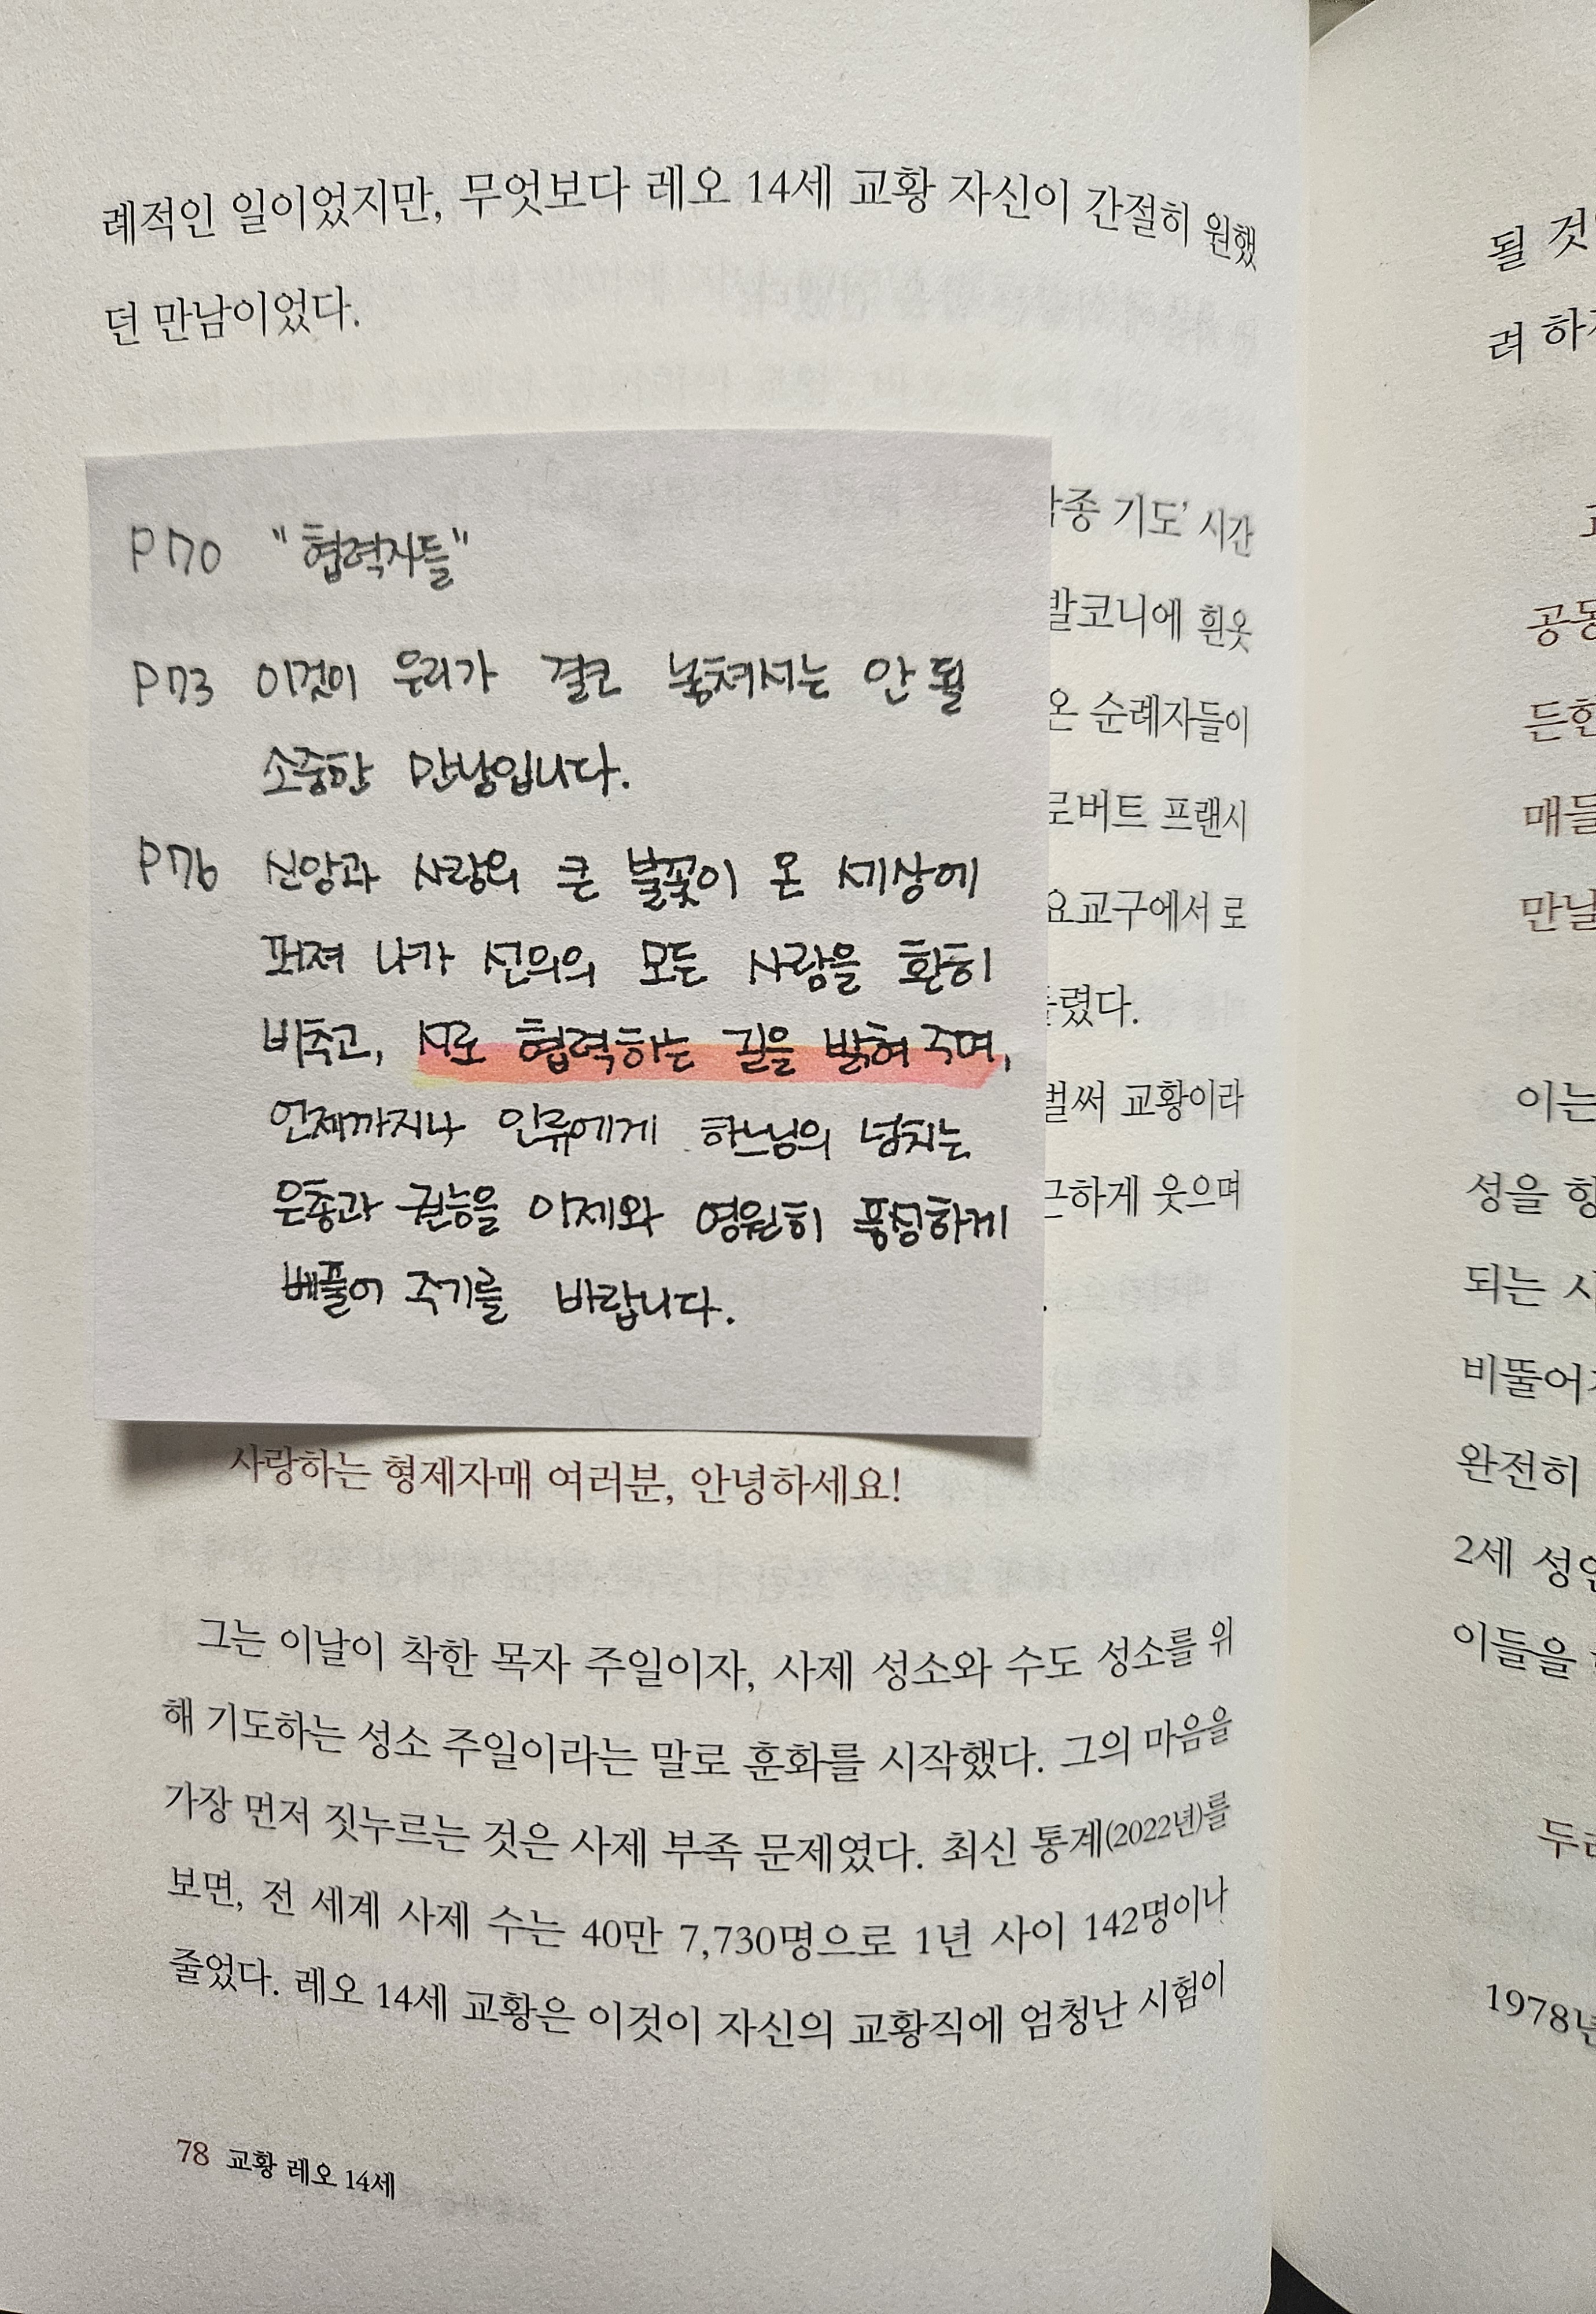 례적인 일이었지만, 무엇보다 레오 14세 교황 자신이 간절히 원했
던 만남이었다.
P70 "협력자들"
P73 이것이 우리가 결코 놓쳐서는 안 될
소중한 만남입니다.
P76 신앙과 사랑의 큰 불꽃이 온 세상에
퍼져 나가 선의의 모든 사람을 환히
비추고, 서로 협력하는 길을 밝혀 주며,
언제까지나 인류에게 하느님의 넘치는
은총과 권능을 이제와 영원히 풍성하게
베풀어 주기를 바랍니다.
종 기도’ 시간
발코니에 흰옷
온 순례자들이
로버트 프랜시
요교구에서 로
렸다.
벌써 교황이라
하게 웃으며
사랑하는 형제자매 여러분, 안녕하세요!
그는 이날이 착한 목자 주일이자, 사제 성소와 수도 성소를 위
해 기도하는 성소 주일이라는 말로 훈화를 시작했다. 그의 마음을
가장 먼저 짓누르는 것은 사제 부족 문제였다. 최신 통계(2022년)를
보면, 전 세계 사제 수는 40만 7,730명으로 1년 사이 142명이나
줄었다. 레오 14세 교황은 이것이 자신의 교황직에 엄청난 시험이
78 교황 레오 14세
될 것
려 하
공동
든한
매들
만날
이는
성을 항
되는 시
비뚤어
완전히
2세 성인
이들을
두려
1978년